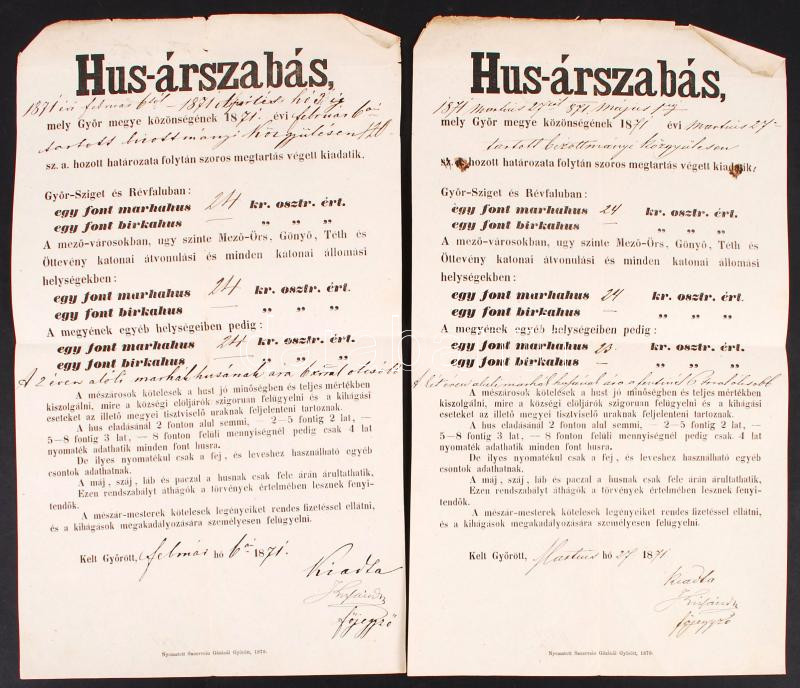 Hus-árszabás,
1871 évi február 6tól – 1871 Április hó 3ig
mely Győr megye közönségének 1871. évi február 6án
tartott bizottmányi közgyülésen
sz. a. hozott határozata folytán szoros megtartás végett kiadatik.
Győr-Sziget és Révfaluban:
egy font marhahus 24 kr. osztr. ért.
egy font birkahus — „ „ „
A mező-városokban, ugy szinte Mező-Örs, Gönyő, Téth és
Öttevény katonai átvonulási és minden katonai állomási
helységekben:
egy font marhahus 24 kr. osztr. ért.
egy font birkahus — „ „ „
A megyének egyéb helységeiben pedig:
egy font marhahus 24 kr. osztr. ért.
egy font birkahus — „ „ „
A 2 éven aloli marhák husának ára 6 krral olcsóbb
A mészárosok kötelesek a hust jó minőségben és teljes mértékben
kiszolgálni, mire a községi elöljárók szigoruan felügyelni és a kihágási
eseteket az illető megyei tisztviselő uraknak feljelenteni tartoznak.
A hus eladásánál 2 fonton alul semmi, — 2—5 fontig 2 lat, —
5—8 fontig 3 lat, — 8 fonton felüli mennyiségnél pedig csak 4 lat
nyomaték adathatik minden font husra.
De ilyes nyomatékul csak a fej, és leveshez használható egyéb
csontok adathatnak.
A máj, száj, láb és paczal a husnak csak fele árán árultathatik,
Ezen rendszabályt áthágók a törvények értelmében lesznek fenyi-
tendők.
A mészár-mesterek kötelesek legényeiket rendes fizetéssel ellátni,
és a kihágások megakadályozására személyesen felügyelni.
Kelt Győrött, február hó 6án 1871.
Kiadta
főjegyző
Nyomatott Sauervein Gézánál Győrött, 1870.
Hus-árszabás,
1871 Martius 27től 871 május 1ig
mely Győr megye közönségének 1871 évi Martius 27-
tartott bizottmányi közgyülésen
sz. a. hozott határozata folytán szoros megtartás végett kiadatik.
Győr-Sziget és Révfaluban:
egy font marhahus 24 kr. osztr. ért.
egy font birkahus — „ „ „
A mező-városokban, ugy szinte Mező-Örs, Gönyő, Téth és
Öttevény katonai átvonulási és minden katonai állomási
helységekben:
egy font marhahus 24 kr. osztr. ért.
egy font birkahus — „ „ „
A megyének egyéb helységeiben pedig:
egy font marhahus 23 kr. osztr. ért.
egy font birkahus — „ „ „
A két éven aluli marhák husánál ára a fontnál 6 krral olcsóbb
A mészárosok kötelesek a hust jó minőségben és teljes mértékben
kiszolgálni, mire a községi elöljárók szigoruan felügyelni és a kihágási
eseteket az illető megyei tisztviselő uraknak feljelenteni tartoznak.
A hus eladásánál 2 fonton alul semmi, — 2—5 fontig 2 lat, —
5—8 fontig 3 lat, — 8 fonton felüli mennyiségnél pedig csak 4 lat
nyomaték adathatik minden font husra.
De ilyes nyomatékul csak a fej, és leveshez használható egyéb
csontok adathatnak.
A máj, száj, láb és paczal a husnak csak fele árán árultathatik,
Ezen rendszabályt áthágók a törvények értelmében lesznek fenyi-
tendők.
A mészár-mesterek kötelesek legényeiket rendes fizetéssel ellátni,
és a kihágások megakadályozására személyesen felügyelni.
Kelt Győrött, Martius hó 27 1871.
Kiadta
főjegyző
Nyomatott Sauervein Gézánál Győrött, 1870.